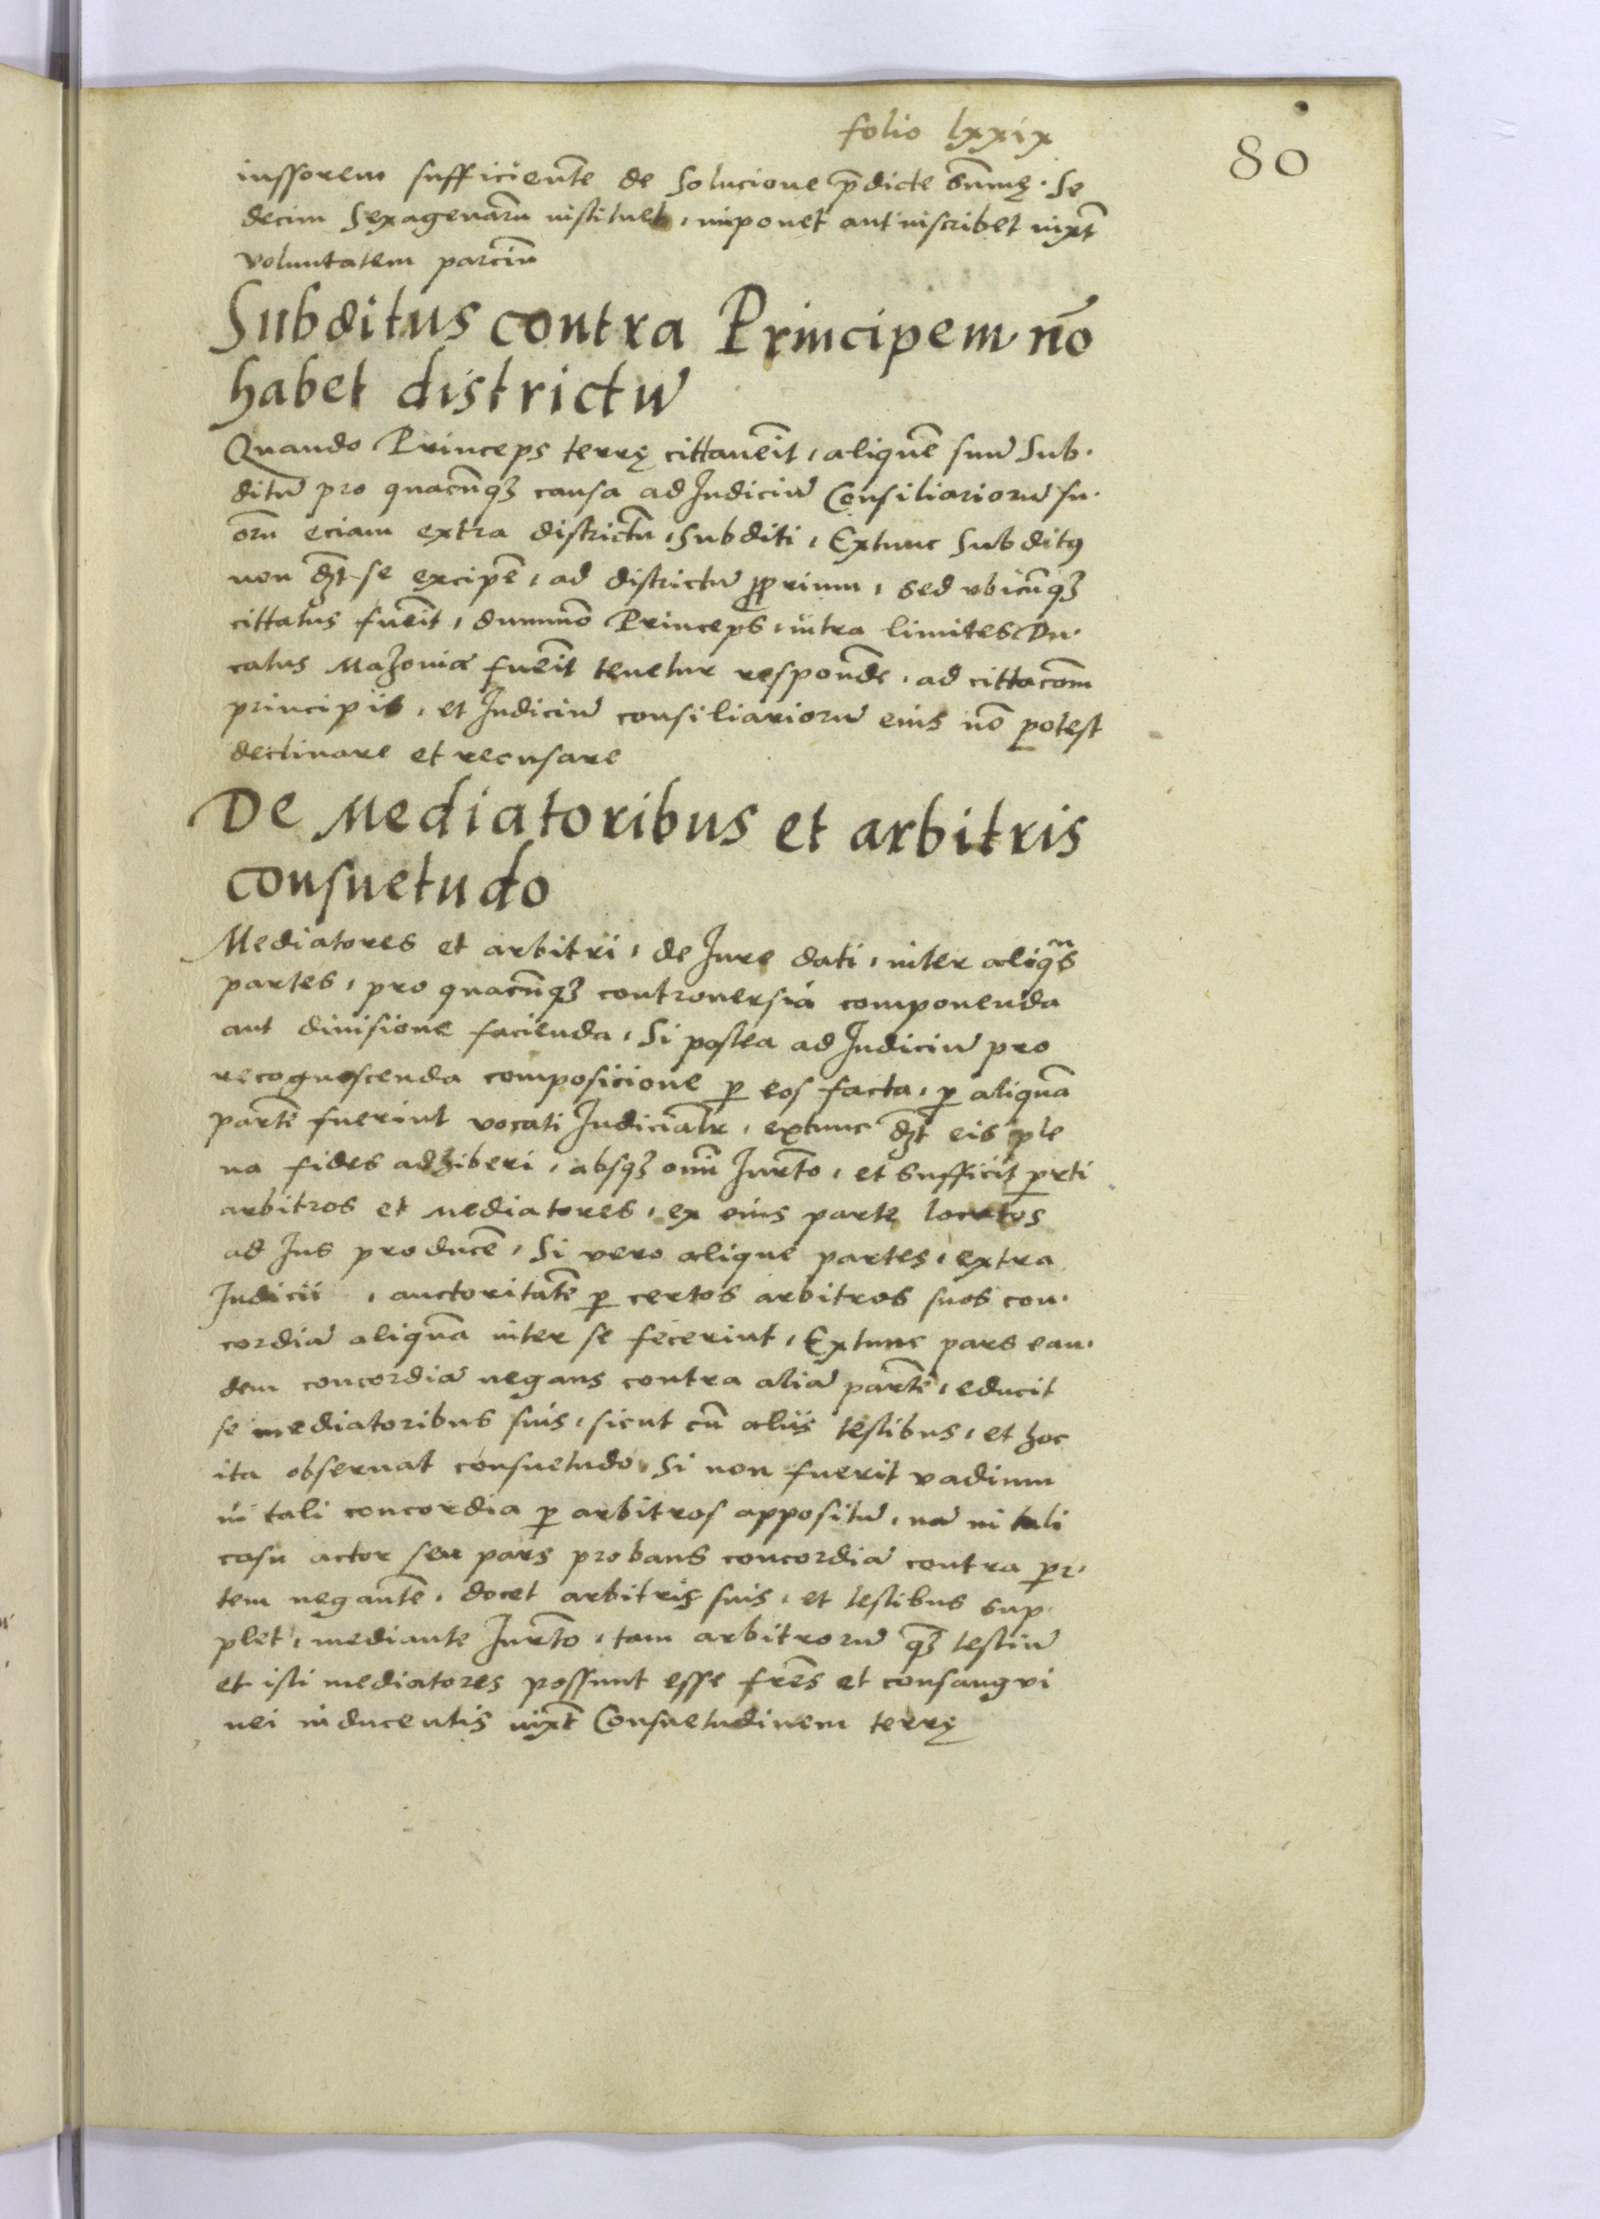 folio lxxix
80
iussorem sufficientē de Solucione p̄dicte Sūmę. Se
decim Sexagenarū instituet, imponet aut inscribet iuxt̄
voluntatem parciū
Subditus contra Principem nō
habet districtū
Quando Princeps terrę cittauēit, aliquē suū Sub.
ditū pro quacūqꝫ causa ad Judiciū Consiliariorū su.
orū eciam extra districtū, Subditi, Extunc Subditꝰ
non dꝫt se excipē, ad districtū ꝓprium, sed vbicūqꝫ
cittatus fuēit, dummō Princeps, intra limites Du.
catus Mazouiæ fuēit tenetur respondē, ad cittacōm
principis, et Judiciū consiliariorū eius nō potest
declinare et recusare
De Mediatoribus et arbitris
consuetudo
Mediatores et arbitri, de Jure dati, inter aliqⁿs
partes, pro quacūqꝫ controuersia componenda
aut diuisione facienda, Si postea ad Judiciū pro
recognoscenda composicione ꝑ eos facta, ꝑ aliquā
partē fuerint vocati Judicialr̄, extunc dꝫt eis ple
na fides adhiberi, absqꝫ omī Jurt̄o, et sufficit ꝑti
arbitros et mediatores, ex eius parte locatos
ad Jus producē, Si vero alique partes, extra
Judicii, auctoritatē ꝑ certos arbitros suos con.
cordiā aliquā inter se fecerint, Extunc pars ean.
dem concordiā negans contra aliā partē, educit
se mediatoribus suis, sicut cū aliis testibus, et hoc
ita obseruat consuetudo, Si non fuerit vadium
in tali concordia ꝑ arbitros appositū, nā in tali
casu actor seu pars probans concordiā contra par.
tem negantē, docet arbitris suis, et testibus sup
plet, mediante Jurt̄o, tam arbitrorū qꝫ testiū
et isti mediatores possunt esse frēs et consangvi
nei inducentis iuxt̄ Consuetudinem terrę